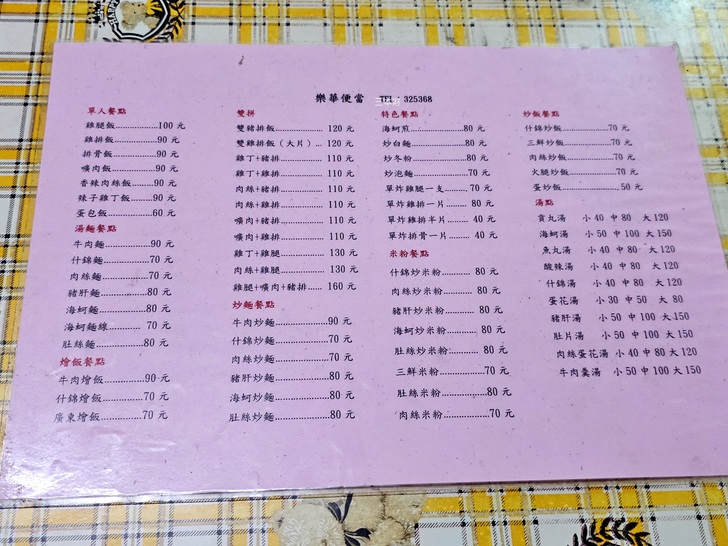 樂華便當 TEL：325368
單人餐點
雞腿飯..................100 元
雞排飯..................90 元
排骨飯..................90 元
噶肉飯..................90 元
香辣肉絲飯.........90 元
辣子雞丁飯.........90 元
蛋包飯..................60 元
湯麵餐點
牛肉麵..................90 元
什錦麵..................70 元
肉絲麵..................70 元
豬肝麵..................80 元
海蚵麵..................80 元
海蚵麵線............ 70 元
肚絲麵..................80 元
燴飯餐點
牛肉燴飯...............90 元
什錦燴飯...............70 元
廣東燴飯...............70 元
雙拼
雙豬排飯..................... 120 元
雙雞排飯（大片）... 120 元
雞丁+豬排.................. 110 元
雞丁+雞排.................. 110 元
肉絲+豬排.................. 110 元
肉絲+雞排.................. 110 元
噶肉+豬排.................. 110 元
噶肉+雞排.................. 110 元
雞丁+雞腿.................. 130 元
肉絲+雞腿.................. 130 元
雞腿+噶肉+豬排...... 160 元
炒麵餐點
牛肉炒麵.....................90 元
什錦炒麵.....................70 元
肉絲炒麵.....................70 元
豬肝炒麵.....................80 元
海蚵炒麵.....................80 元
肚絲炒麵.....................80 元
特色餐點
海蚵煎.....................80 元
炒白麵.....................80 元
炒冬粉.....................80 元
炒泡麵.....................70 元
單炸雞腿一支......... 70 元
單炸雞排一片......... 80 元
單炸雞排半片......... 40 元
單炸排骨一片......... 40 元
米粉餐點
什錦炒米粉............ 80 元
肉絲炒米粉............ 80 元
豬肝炒米粉............ 80 元
海蚵炒米粉............ 80 元
肚絲炒米粉............ 80 元
三鮮米粉..................70 元
肚絲米粉..................80 元
肉絲米粉..................70 元
炒飯餐點
什錦炒飯..................70 元
三鮮炒飯..................70 元
肉絲炒飯..................70 元
火腿炒飯..................70 元
蛋炒飯..................... 50 元
湯點
貢丸湯 小 40 中 80 大 120
海蚵湯 小 50 中 100 大 150
魚丸湯 小 40 中 80 大 120
酸辣湯 小 40 中 80 大 120
什錦湯 小 40 中 80 大 120
蛋花湯 小 30 中 50 大 80
豬肝湯 小 50 中 100 大 150
肚片湯 小 50 中 100 大 150
肉絲蛋花湯 小 40 中 80 大 120
牛肉羹湯 小 50 中 100 大 150